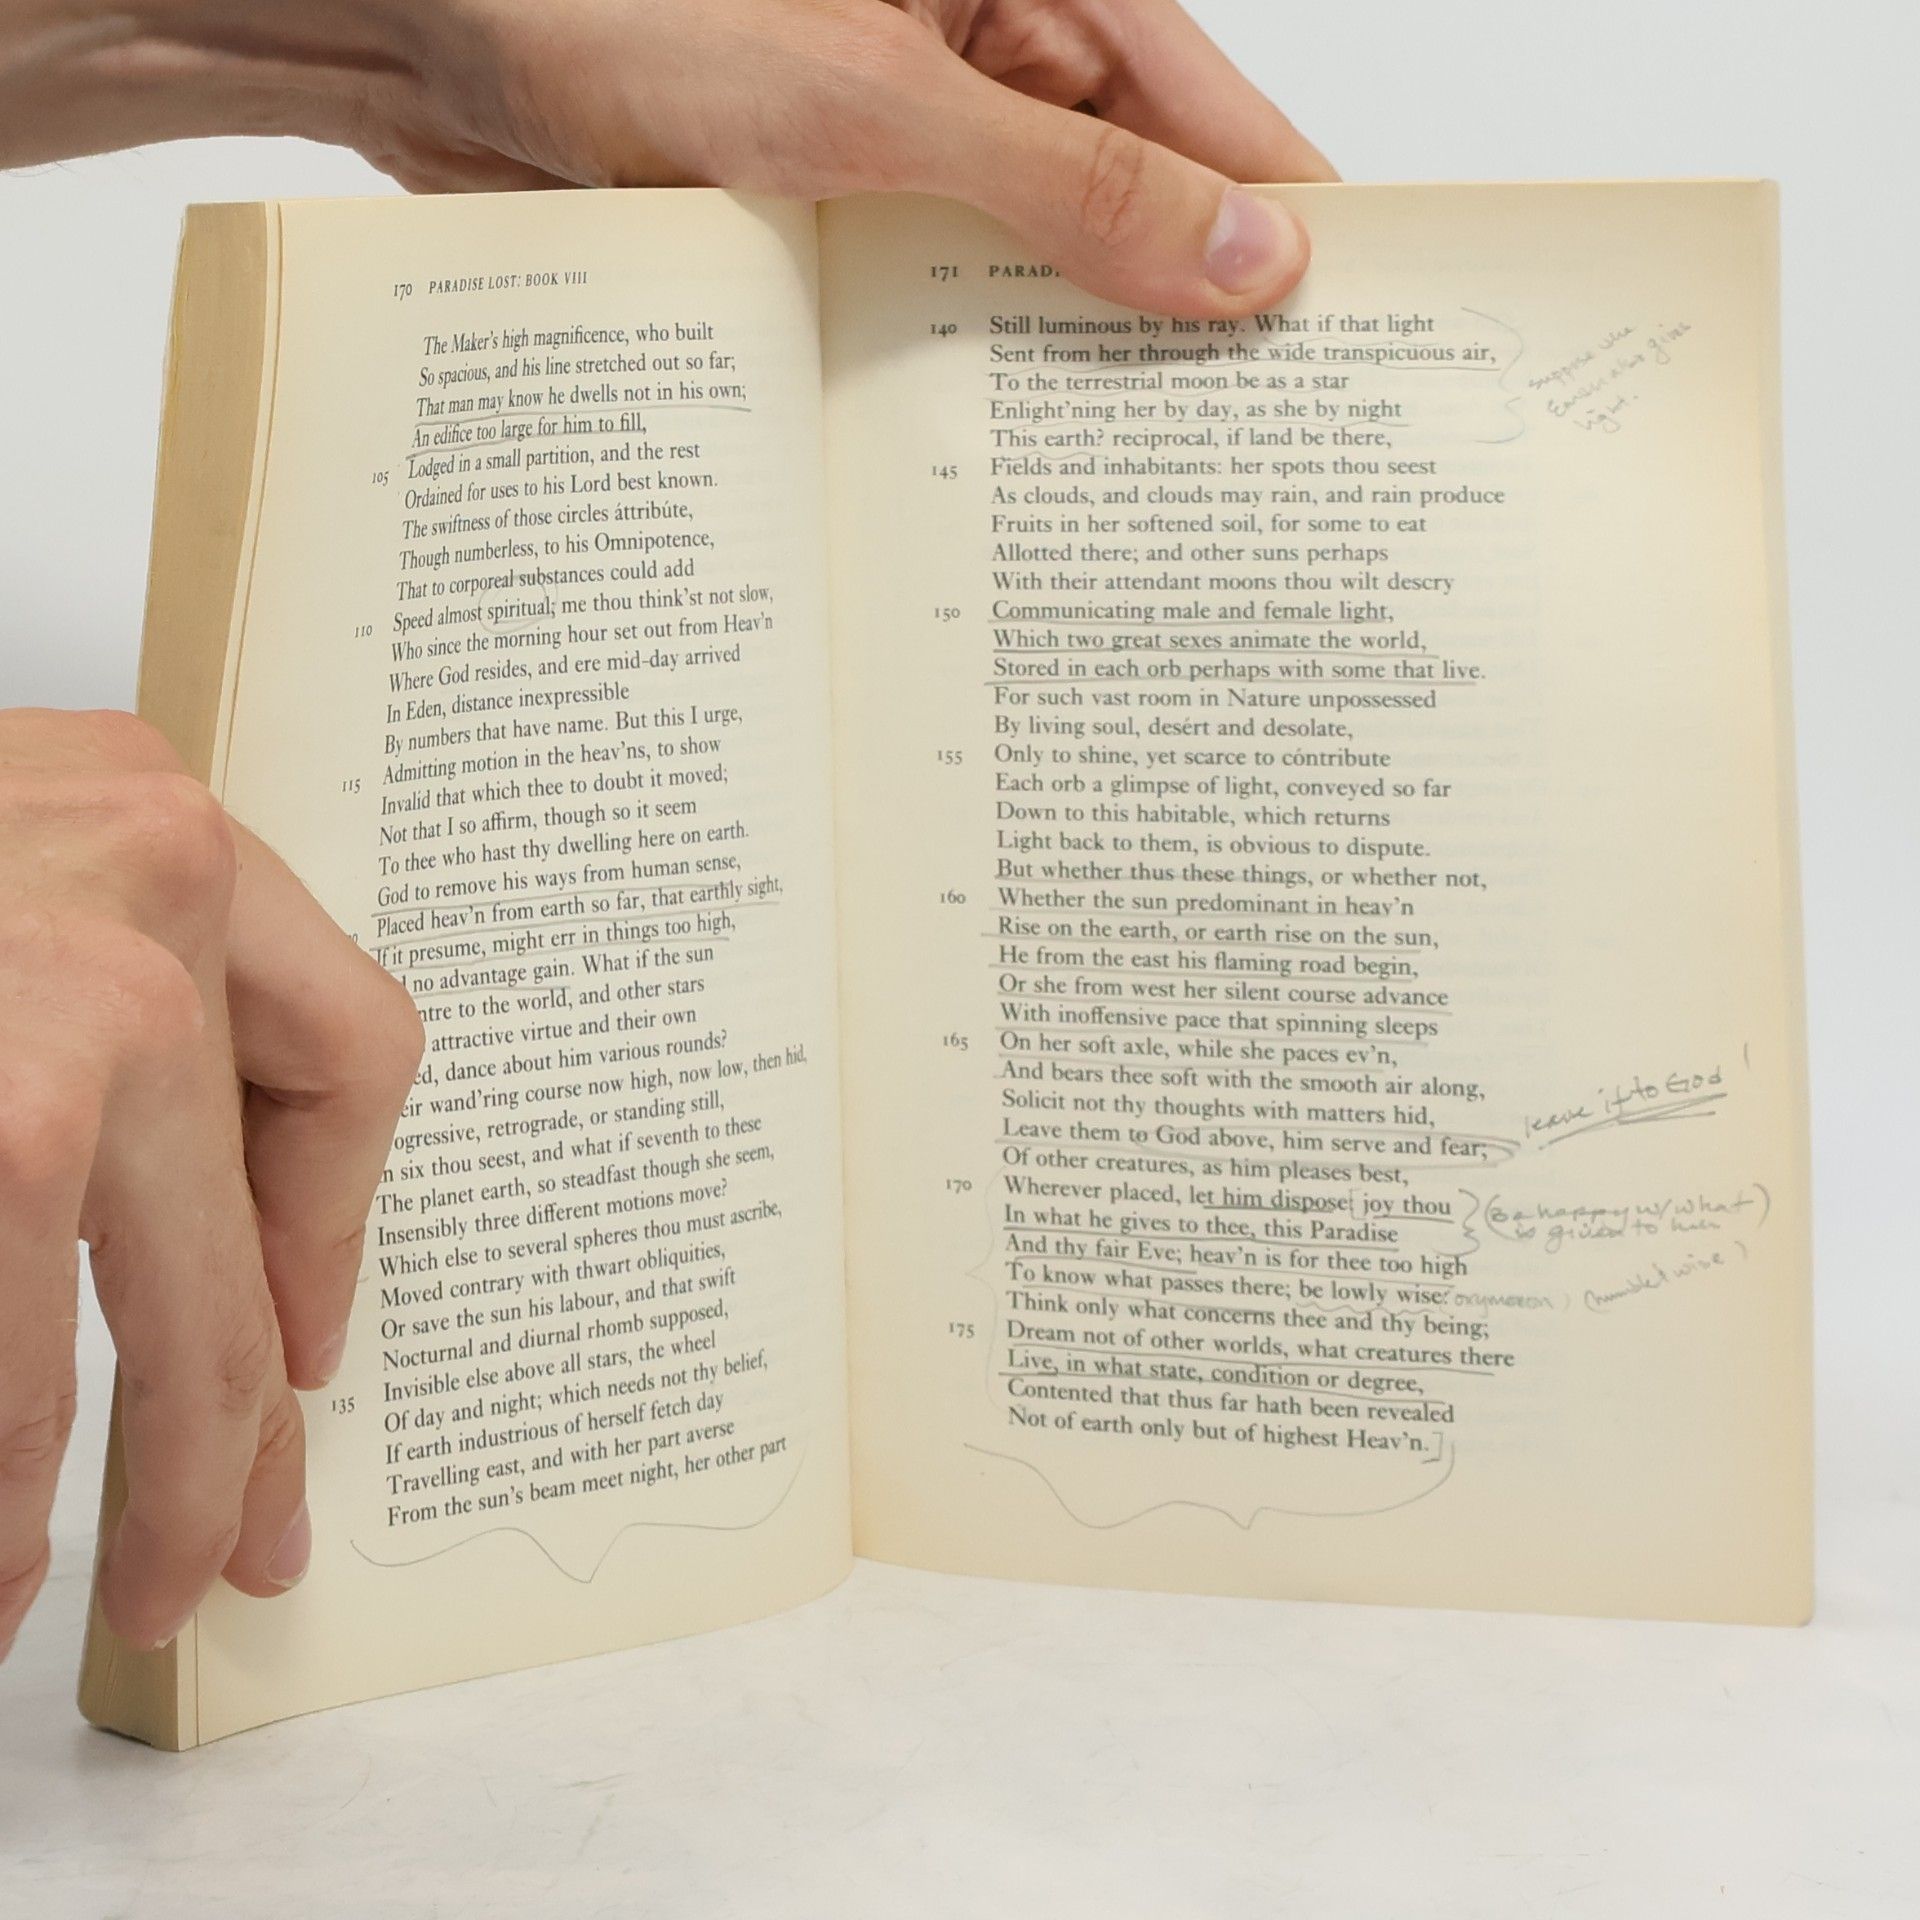 170 PARADISE LOST: BOOK VIII
The Maker's high magnificence, who built
So spacious, and his line stretched out so far;
That man may know he dwells not in his own;
An edifice too large for him to fill,
105 Lodged in a small partition, and the rest
Ordained for uses to his Lord best known.
The swiftness of those circles áttribúte,
Though numberless, to his Omnipotence,
That to corporeal substances could add
110 Speed almost spiritual; me thou think'st not slow,
Who since the morning hour set out from Heav'n
Where God resides, and ere mid-day arrived
In Eden, distance inexpressible
By numbers that have name. But this I urge,
115 Admitting motion in the heav'ns, to show
Invalid that which thee to doubt it moved;
Not that I so affirm, though so it seem
To thee who hast thy dwelling here on earth.
God to remove his ways from human sense,
Placed heav'n from earth so far, that earthly sight,
If it presume, might err in things too high,
no advantage gain. What if the sun
ntre to the world, and other stars
attractive virtue and their own
ed, dance about him various rounds?
eir wand'ring course now high, now low, then hid,
ogressive, retrograde, or standing still,
n six thou seest, and what if seventh to these
The planet earth, so steadfast though she seem,
Insensibly three different motions move?
Which else to several spheres thou must ascribe,
Moved contrary with thwart obliquities,
Or save the sun his labour, and that swift
Nocturnal and diurnal rhomb supposed,
Invisible else above all stars, the wheel
135 Of day and night; which needs not thy belief,
If earth industrious of herself fetch day
Travelling east, and with her part averse
From the sun's beam meet night, her other part
171 PARAD
140 Still luminous by his ray. What if that light
Sent from her through the wide transpicuous air,
To the terrestrial moon be as a star
Enlight'ning her by day, as she by night
This earth? reciprocal, if land be there,
suppose the
Earth also gives
light.
145 Fields and inhabitants: her spots thou seest
As clouds, and clouds may rain, and rain produce
Fruits in her softened soil, for some to eat
Allotted there; and other suns perhaps
With their attendant moons thou wilt descry
150 Communicating male and female light,
Which two great sexes animate the world,
Stored in each orb perhaps with some that live.
For such vast room in Nature unpossessed
By living soul, desért and desolate,
155 Only to shine, yet scarce to cóntribute
Each orb a glimpse of light, conveyed so far
Down to this habitable, which returns
Light back to them, is obvious to dispute.
But whether thus these things, or whether not,
160 Whether the sun predominant in heav'n
Rise on the earth, or earth rise on the sun,
He from the east his flaming road begin,
Or she from west her silent course advance
With inoffensive pace that spinning sleeps
165 On her soft axle, while she paces ev'n,
And bears thee soft with the smooth air along,
Solicit not thy thoughts with matters hid,
Leave them to God above, him serve and fear;
leave it to God
Of other creatures, as him pleases best,
170 Wherever placed, let him dispose: joy thou
In what he gives to thee, this Paradise
(Be happy w/ what)
is given to him
And thy fair Eve; heav'n is for thee too high
To know what passes there; be lowly wise: oxymoron) (humble + wise)
Think only what concerns thee and thy being;
175 Dream not of other worlds, what creatures there
Live, in what state, condition or degree,
Contented that thus far hath been revealed
Not of earth only but of highest Heav'n.]